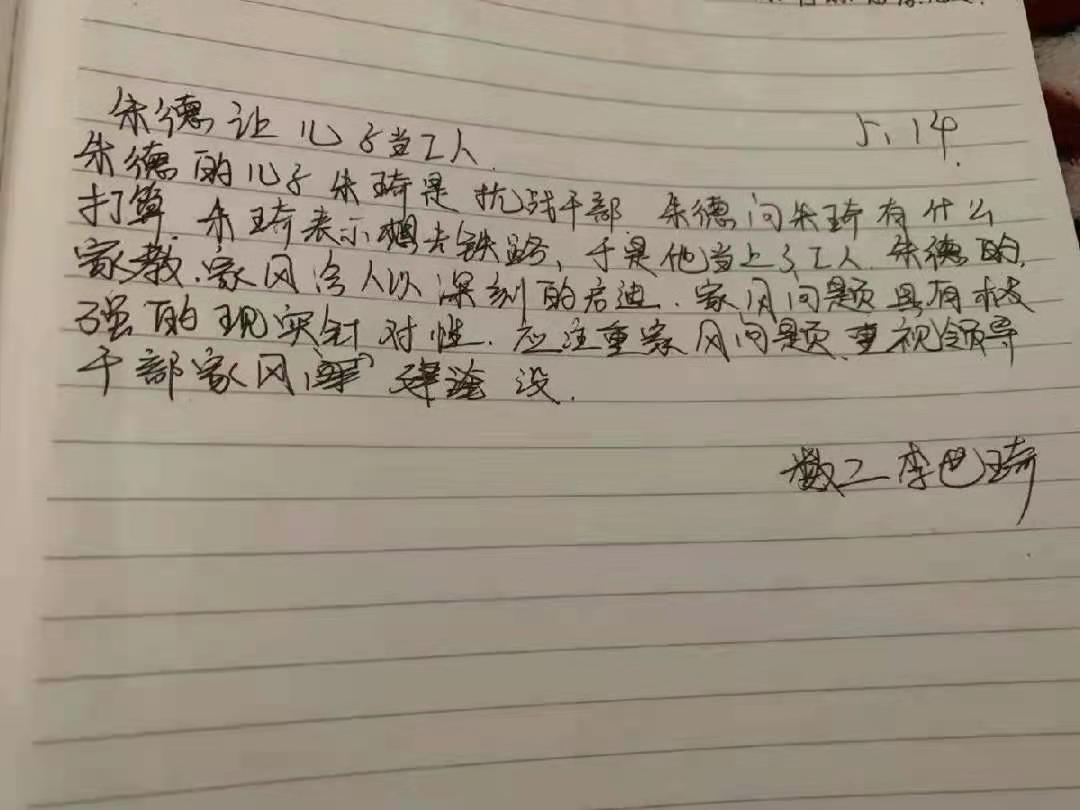 朱德让儿子当工人. 5.14.
朱德的儿子朱琦是抗战干部. 朱德问朱琦有什么
打算. 朱琦表示想去铁路, 于是他当上了工人. 朱德的
家教.家风给人以深刻的启迪. 家风问题具有极
强的现实针对性. 应注重家风问题.重视领导
干部家风 建设.
数二 李巴琦